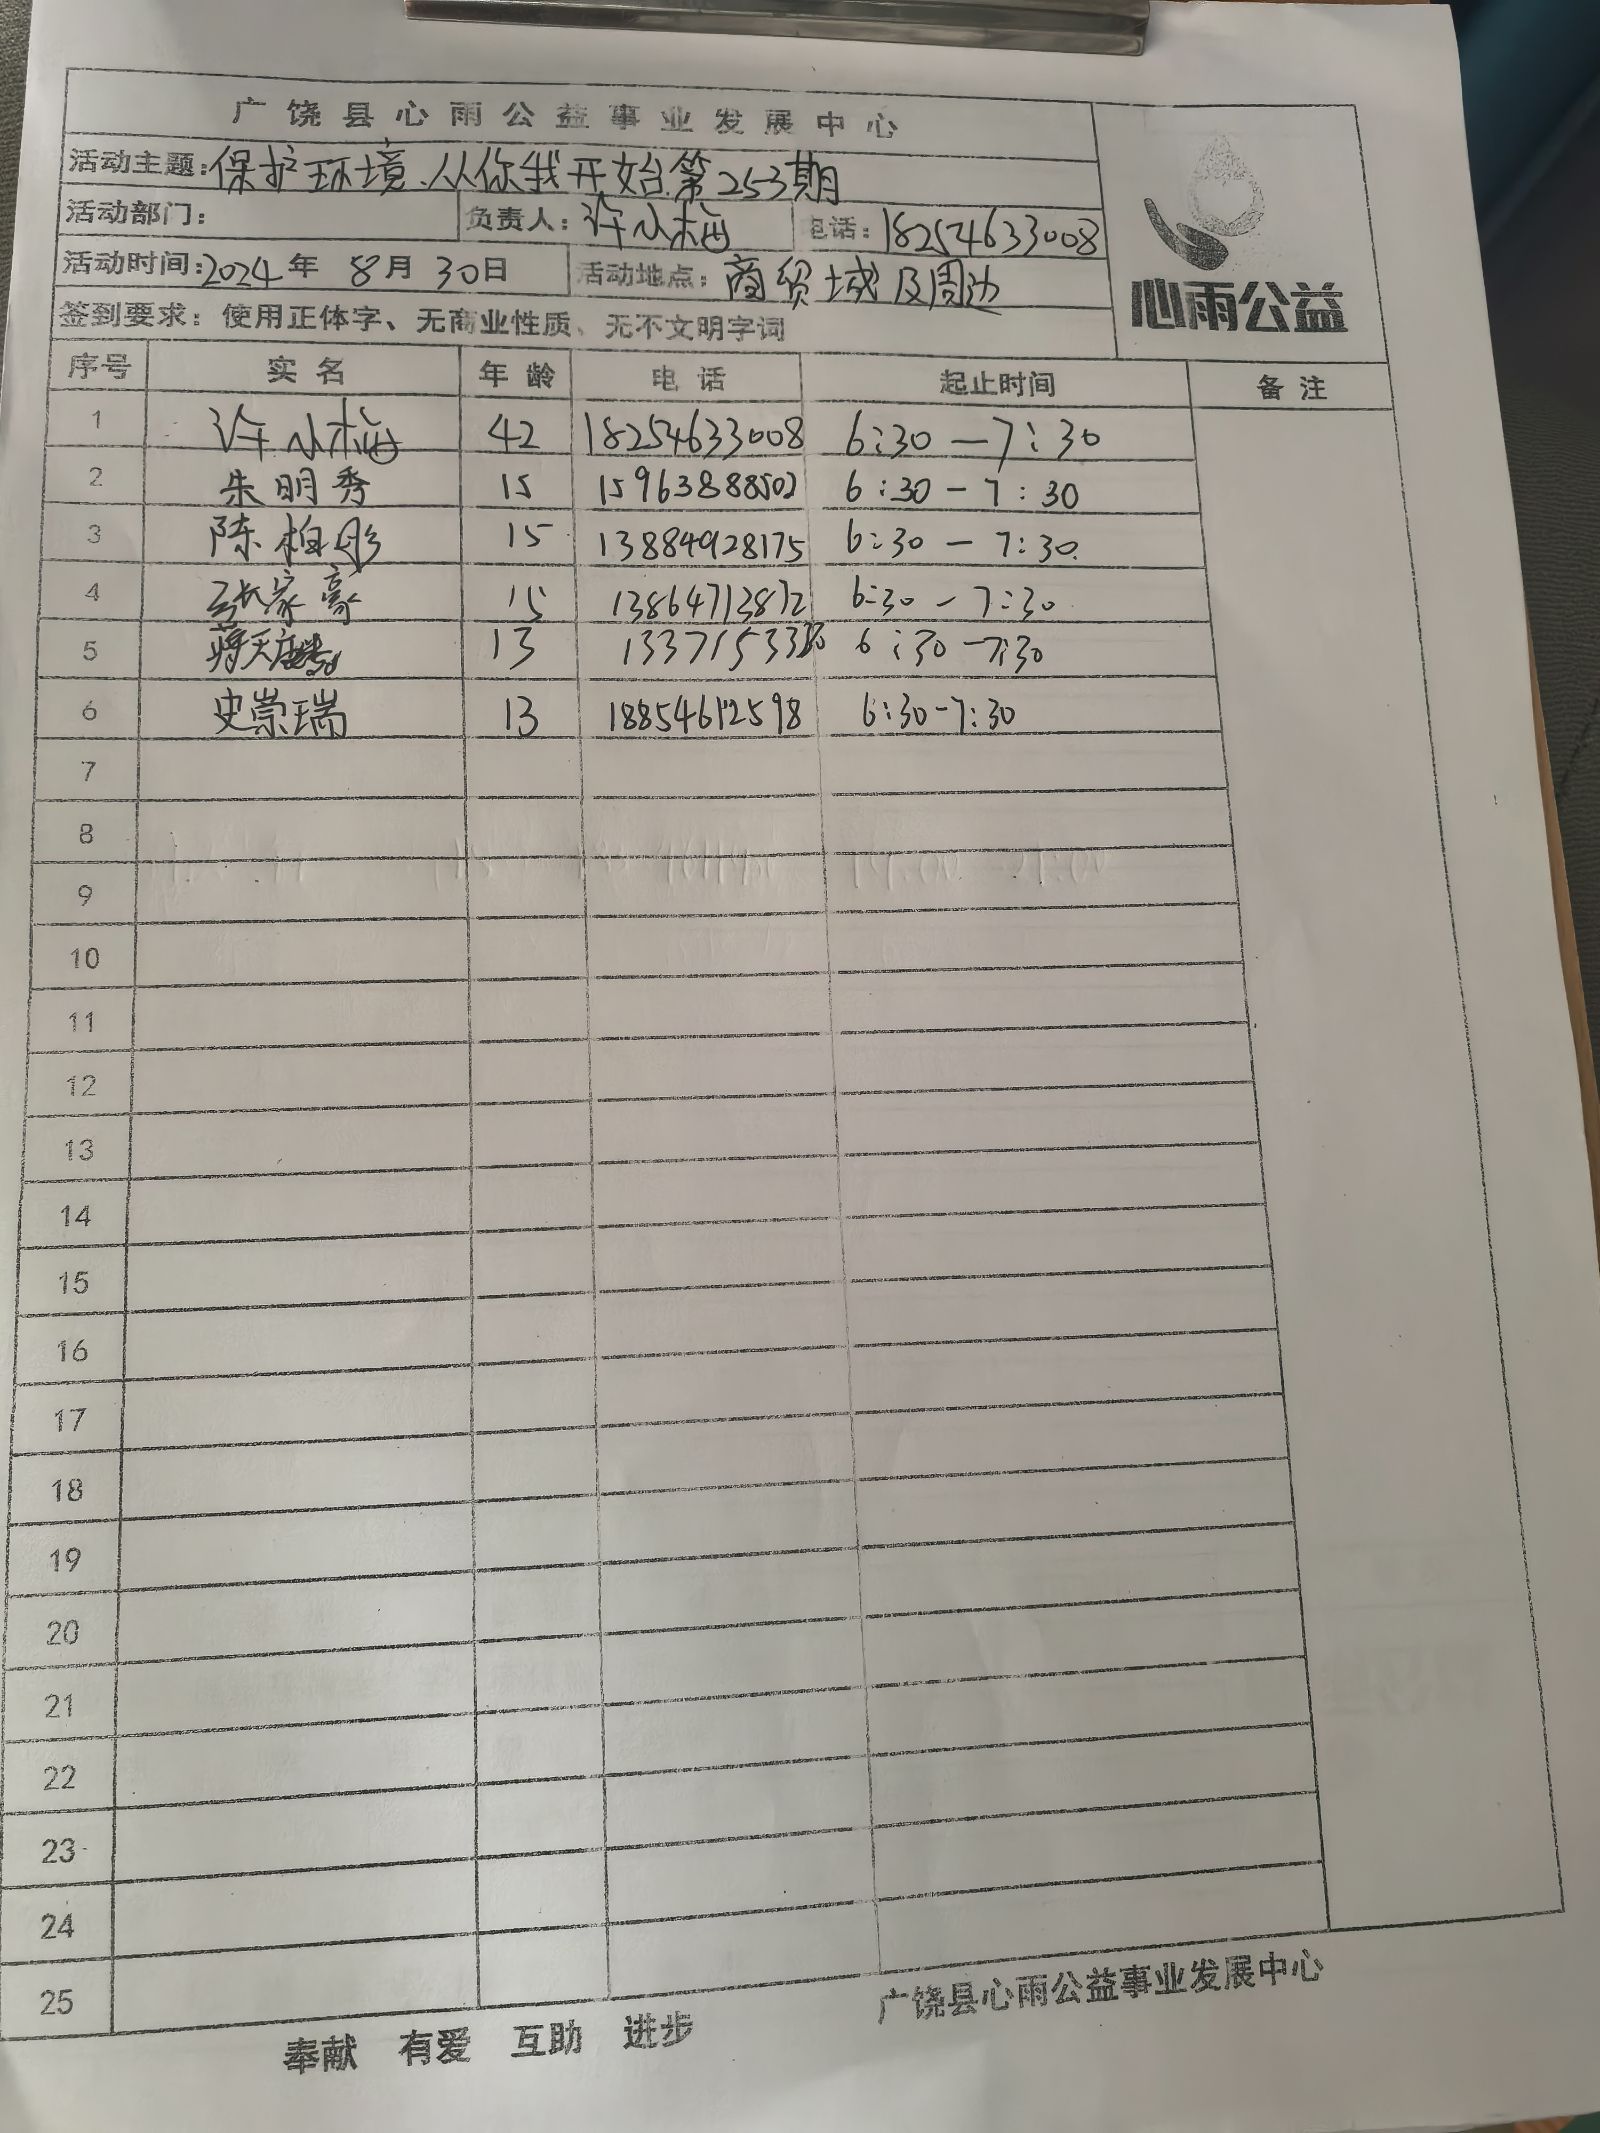 广饶县心雨公益事业发展中心
活动主题:保护环境、从你我开始.第253期
活动部门: 负责人:许小梅 电话:18254633008
活动时间:2024年 8月 30日 活动地点:商贸城及周边
心雨公益
签到要求:使用正体字、无商业性质、无不文明字词
序号 实名 年龄 电话 起止时间 备注
1 许小梅 42 18254633008 6:30—7:30
2 朱明秀 15 15963888502 6:30-7:30
3 陈柏彤 15 13884928175 6:30-7:30
4 张家豪 15 13864713872 6:30-7:30
5 蒋天 13 6:30-7:30
6 史崇瑞 13 18854612598 6:30-7:30
7
8
9
10
11
12
13
14
15
16
17
18
19
20
21
22
23
24
25
广饶县心雨公益事业发展中心
奉献 有爱 互助 进步